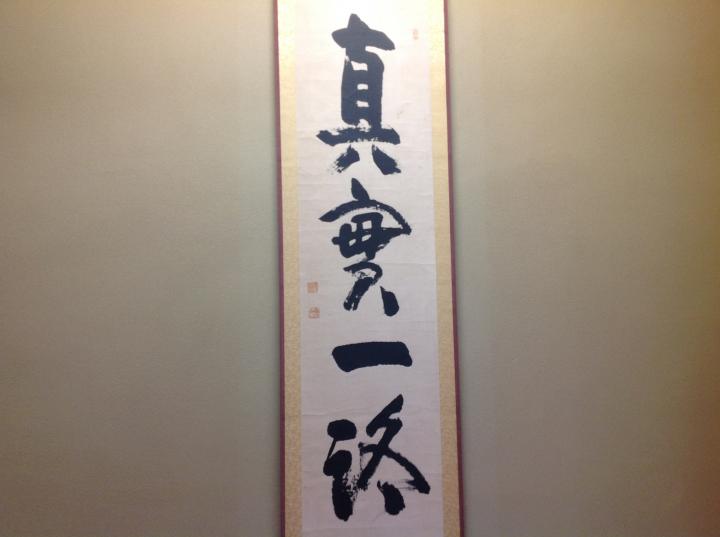 真實一路